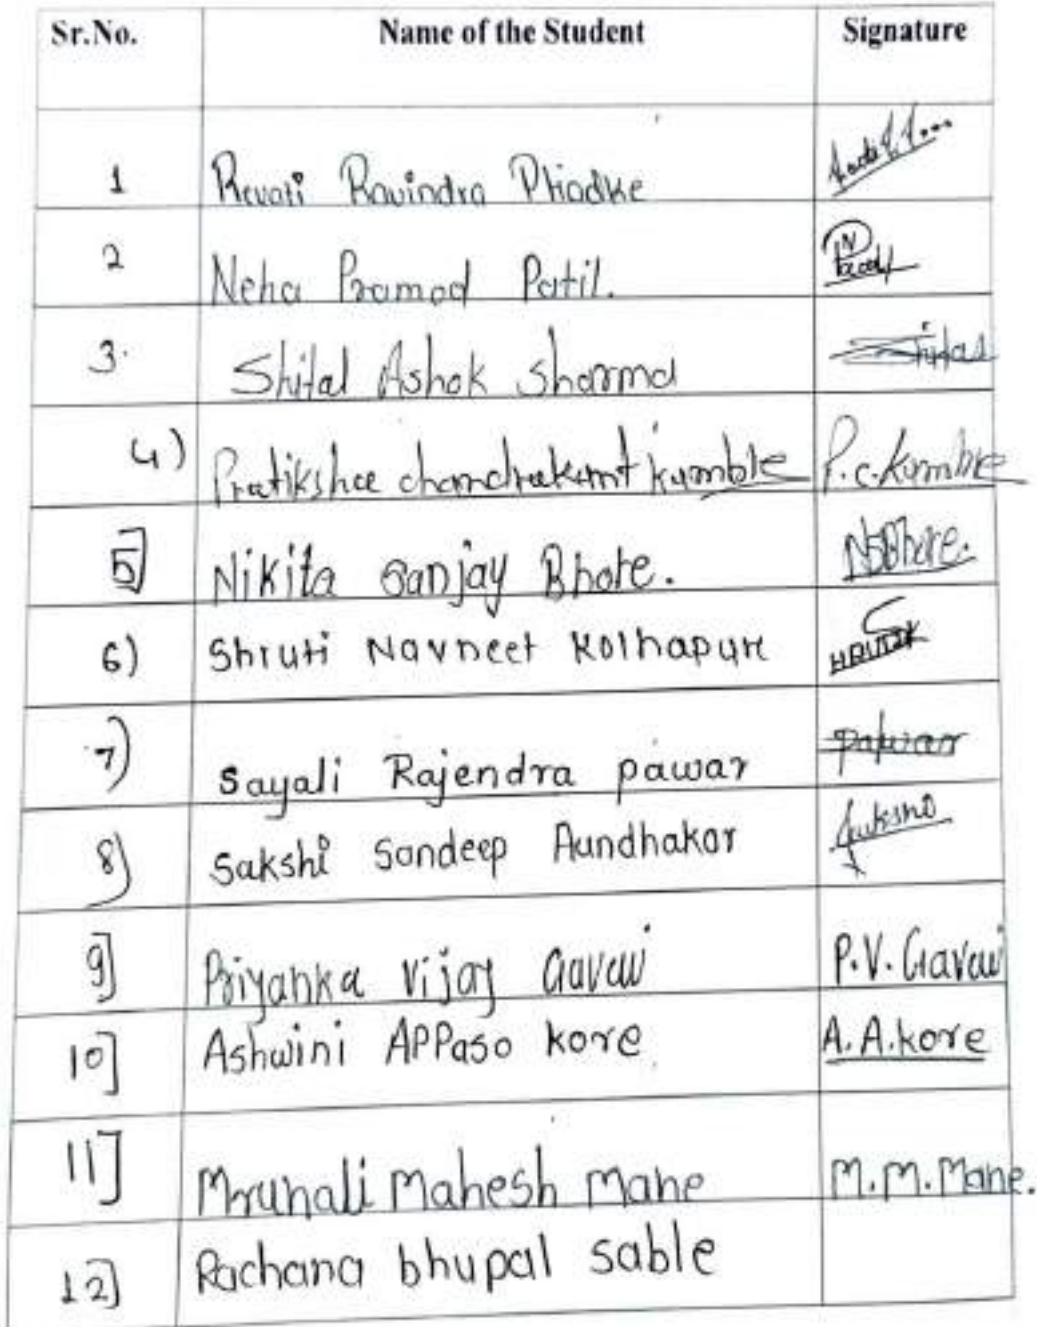 Sr.No. Name of the Student Signature
1 Revati Ravindra Phadke
2 Neha Pramod Patil.
3. Shital Ashok Sharma Shital
4) Pratikshee chandrakant kamble P.c.Kamble
5] Nikita Sanjay Bhore. NSBhore.
6) Shruti Navneet Kolhapure
7) Sayali Rajendra pawar pawar
8) Sakshi Sandeep Aundhakar Sakshi
9] Priyanka Vijay Gavai P.V. Gavai
10] Ashwini APPaso kore A.A.kore
11] Mrunali Mahesh Mane M.M.Mane.
12] Rachana bhupal sable